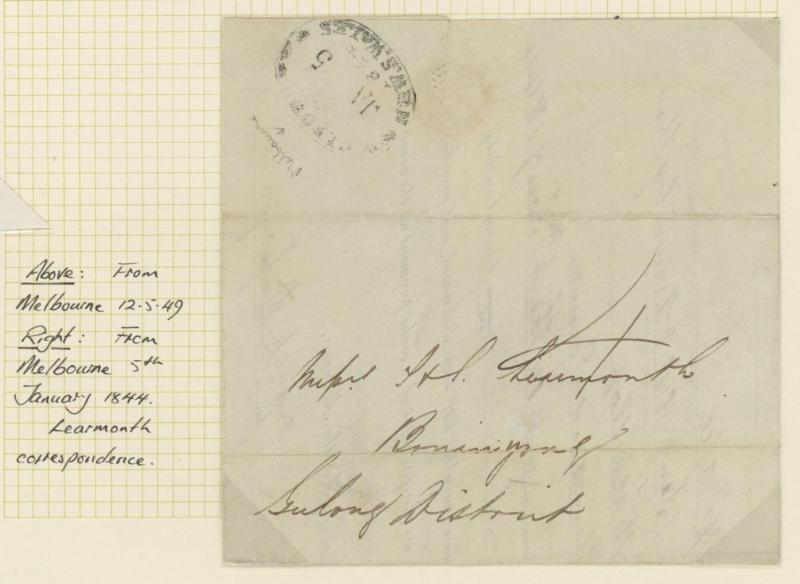 Above: From
Melbourne 12-5-49
Right: From
Melbourne 5th
January 1844.
Learmonth
correspondence.
NEW.S.WALES
5
JA
Melbourne
Messrs T & S. Learmonth
Boninyong
Gulong District